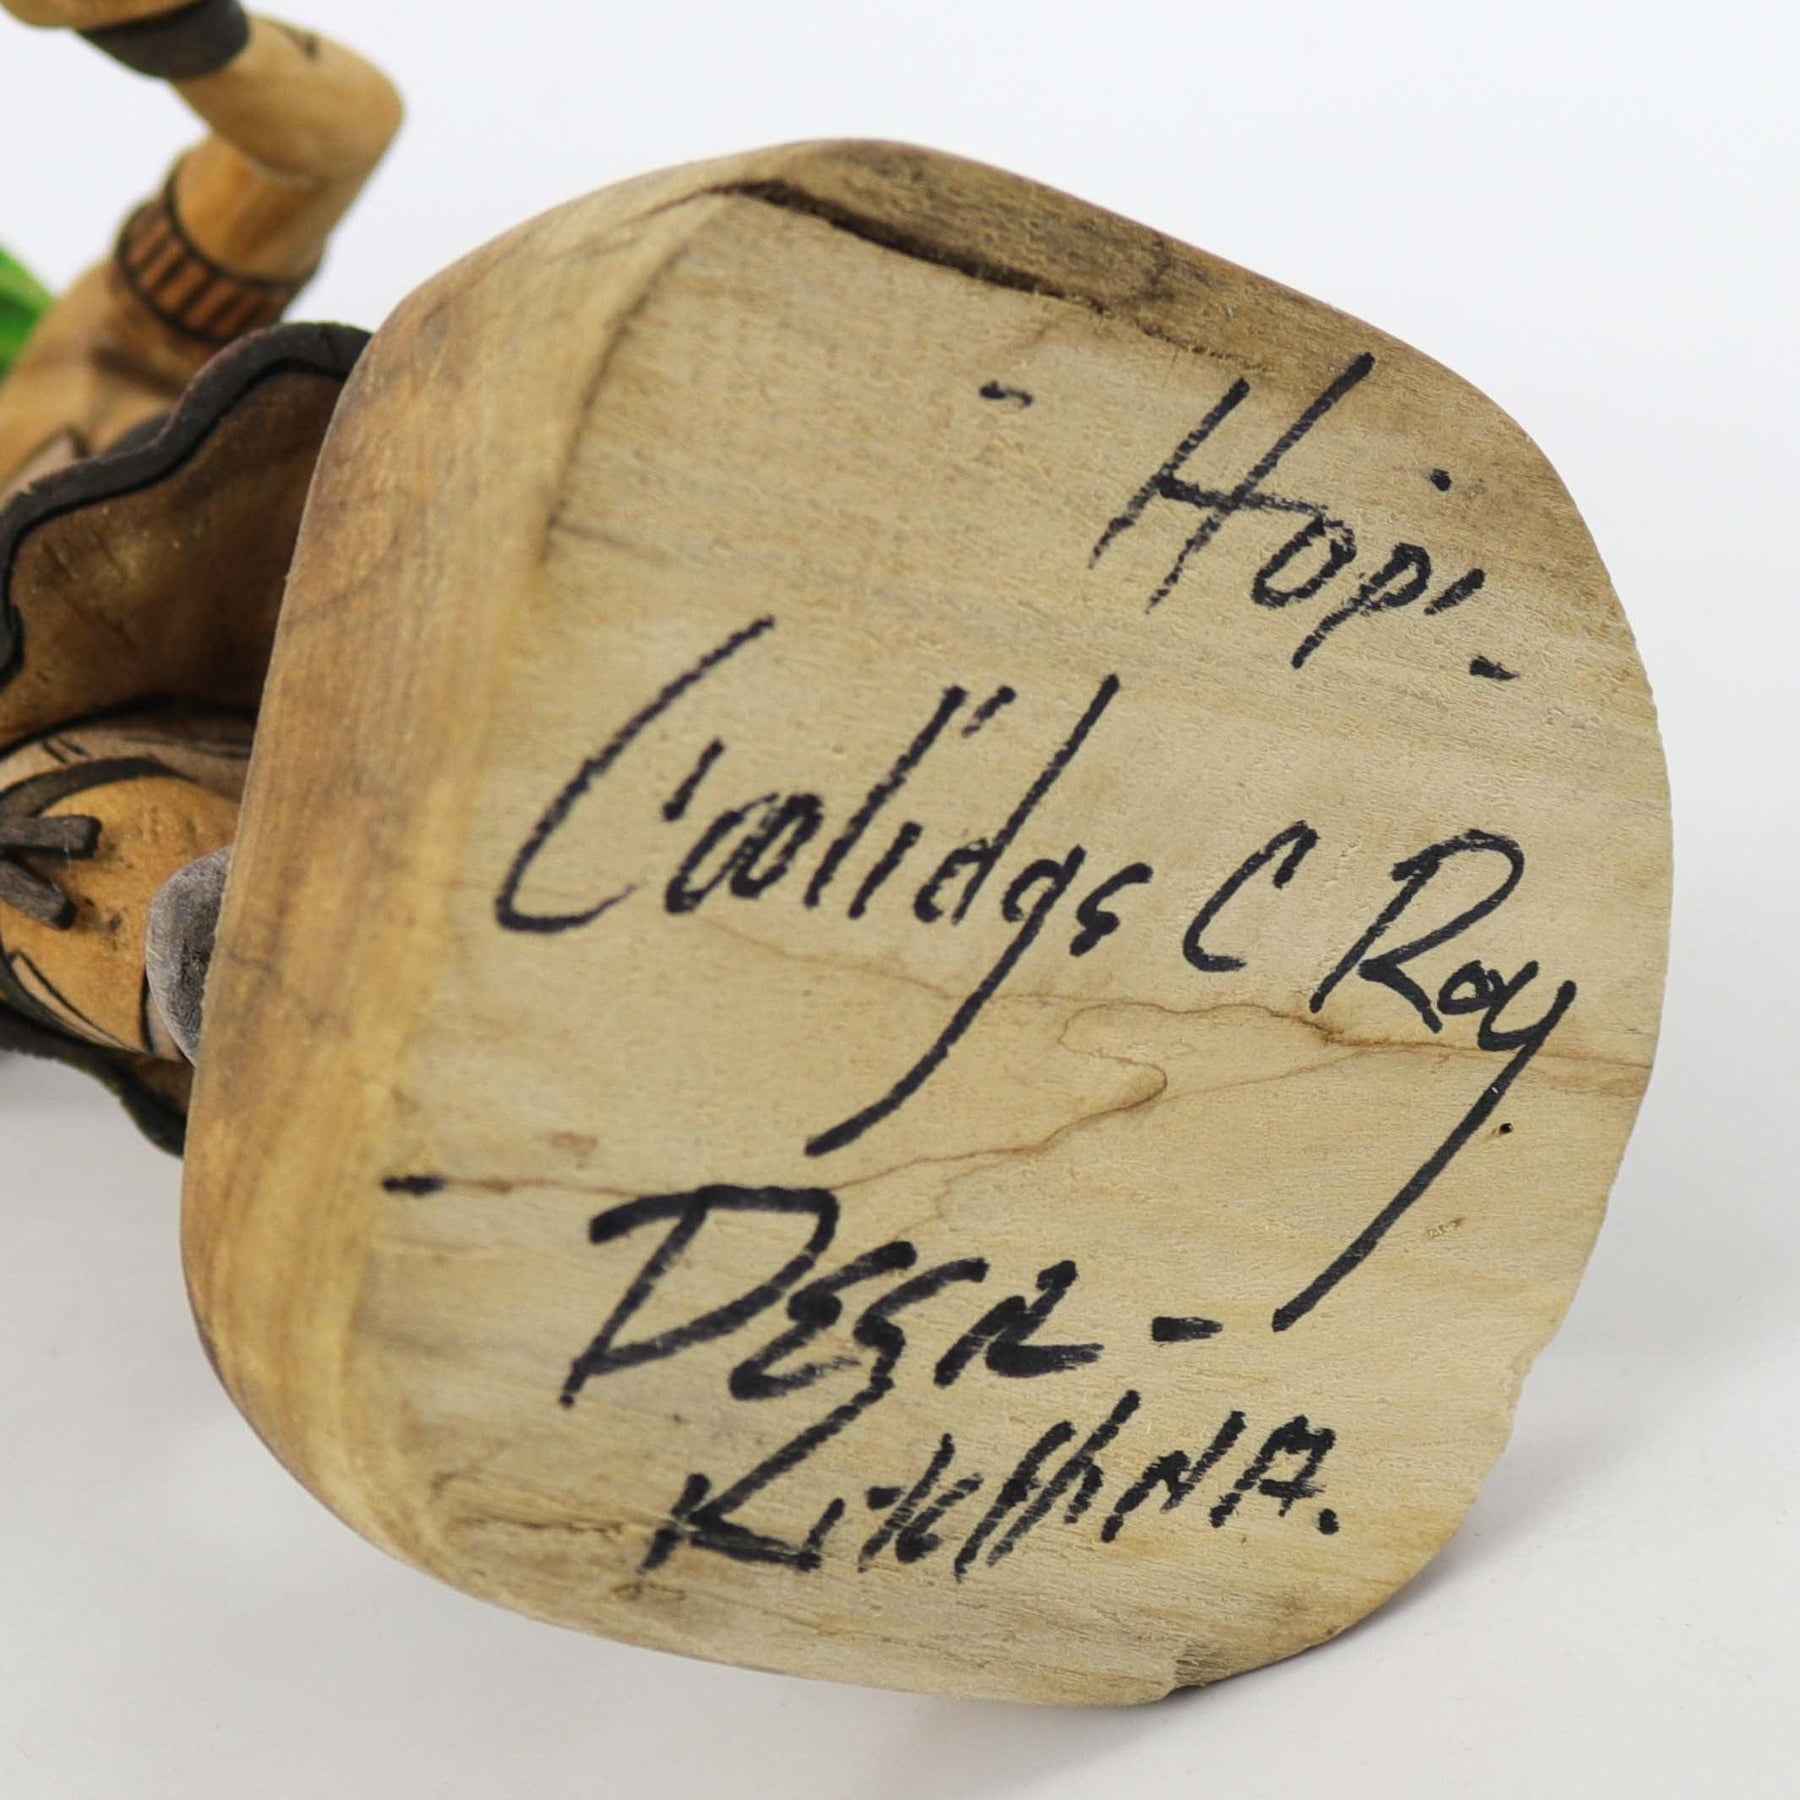 - Hopi -
Coolidge C Roy
- DEER -
KAchiNA.